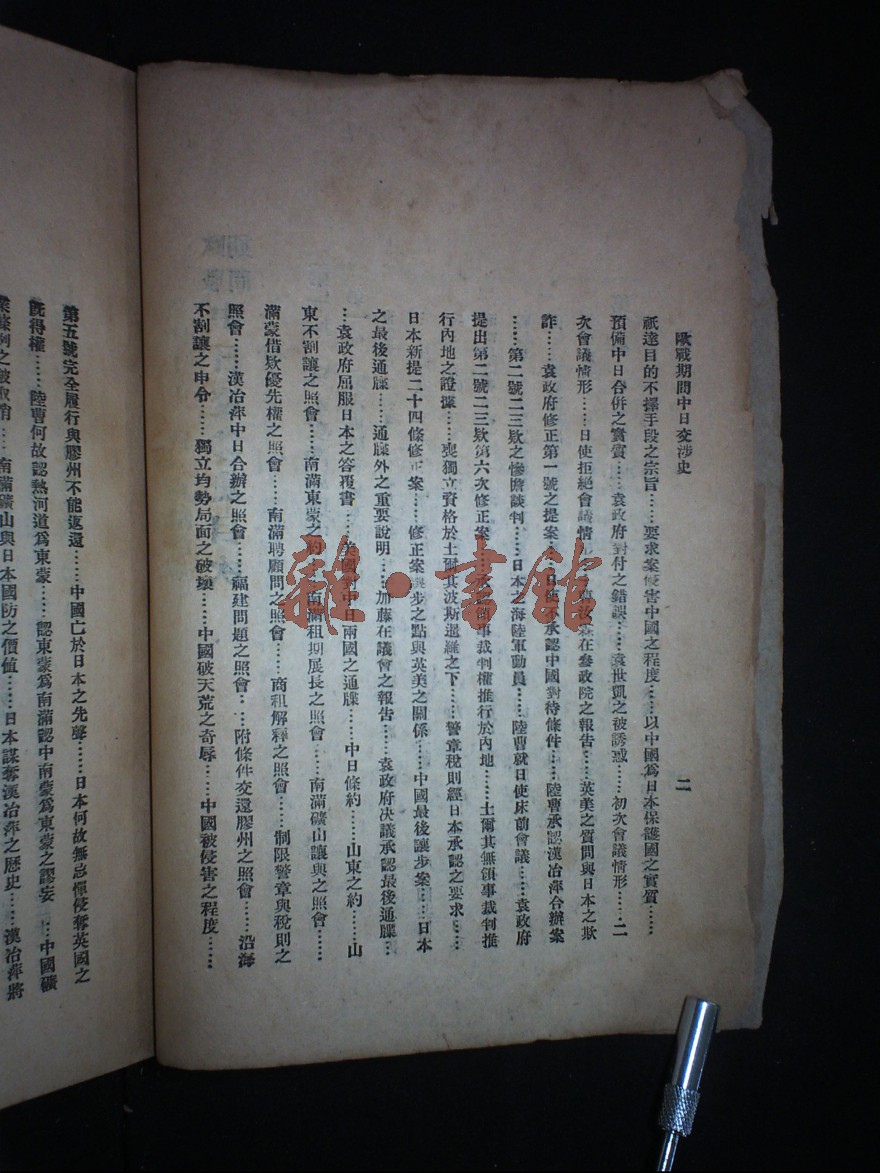 歐戰期間中日交涉史
二
祇達目的不擇手段之宗旨……要求案侵害中國之程度……以中國爲日本保護國之實質……
預備中日合併之實質……袁政府對付之錯誤……袁世凱之被誘惑……初次會議情形……二
次會議情形……日使拒絕會議情
在參政院之報告……英美之質問與日本之欺
詐……袁政府修正第一號之提案……日使不承認中國對待條件……陸曹承認漢冶萍合辦案
……第二號二三欵之慘憺談判……日本之海陸軍動員……陸曹就日使床前會議……袁政府
提出第二號二三欵第六次修正案……承認領事裁判權推行於內地……土爾其無領事裁判推
行內地之證據……喪獨立資格於土爾其波斯暹羅之下……警章稅則經日本承認之要求……
日本新提二十四條修正案……修正案讓步之點與英美之關係……中國最後讓步案……日本
之最後通牒……通牒外之重要說明……加藤在議會之報告……袁政府决議承認最後通牒…
…袁政府屈服日本之答覆書……美國對中日兩國之通牒……中日條約……山東之約……山
東不割讓之照會……南滿東蒙之約……南滿租期展長之照會……南滿礦山讓與之照會……
滿蒙借欵優先權之照會……南滿聘顧問之照會……商租解釋之照會……制限警章與稅則之
照會……漢冶萍中日合辦之照會……福建問題之照會……附條件交還膠州之照會……沿海
不割讓之申令……獨立均勢局面之破壞……中國破天荒之奇辱……中國被侵害之程度……
第五號完全履行與膠州不能返還……中國亡於日本之先聲……日本何故無忌憚侵奪英國之
旣得權……陸曹何故認熱河道爲東蒙……認東蒙爲南滿認中南蒙爲東蒙之謬妄……中國礦
業條例之被取消……南滿礦山與日本國防之價値……日本謀奪漢冶萍之歷史……漢冶萍將
雜·書館